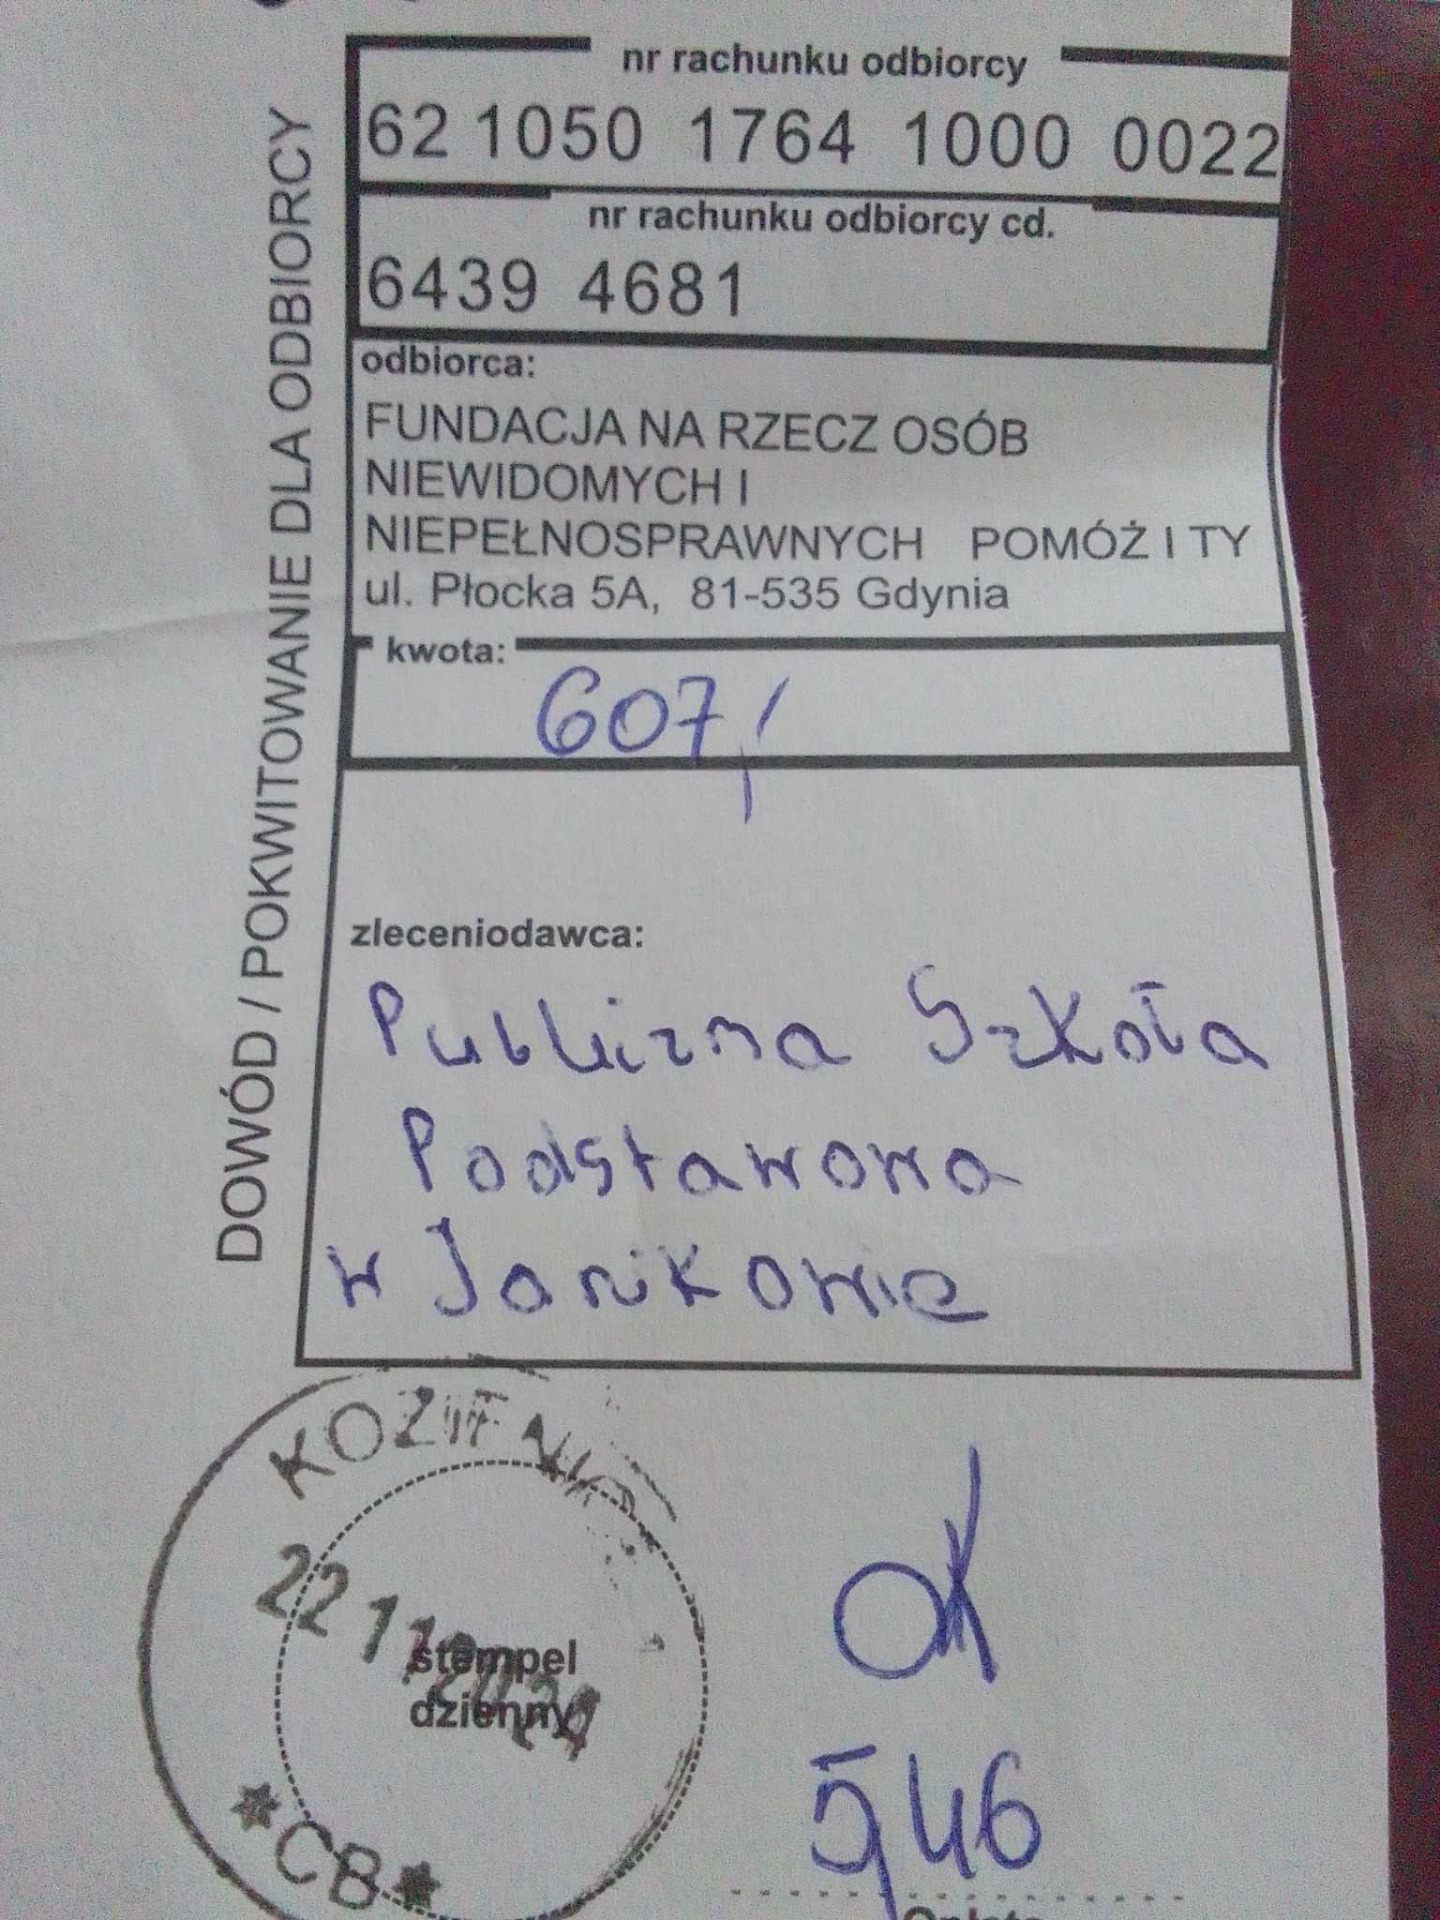 nr rachunku odbiorcy
62 1050 1764 1000 0022
nr rachunku odbiorcy cd.
6439 4681
odbiorca:
FUNDACJA NA RZECZ OSÓB
NIEWIDOMYCH I
NIEPEŁNOSPRAWNYCH POMÓŻ I TY
ul. Płocka 5A, 81-535 Gdynia
kwota:
607,
zleceniodawca:
Publiczna Szkoła
Podstawowa
w Janikowie
DOWÓD / POKWITOWANIE DLA ODBIORCY
KOZIENICE
22 11
stempel
dzienny
*CB*
OK
5,46
Opłata